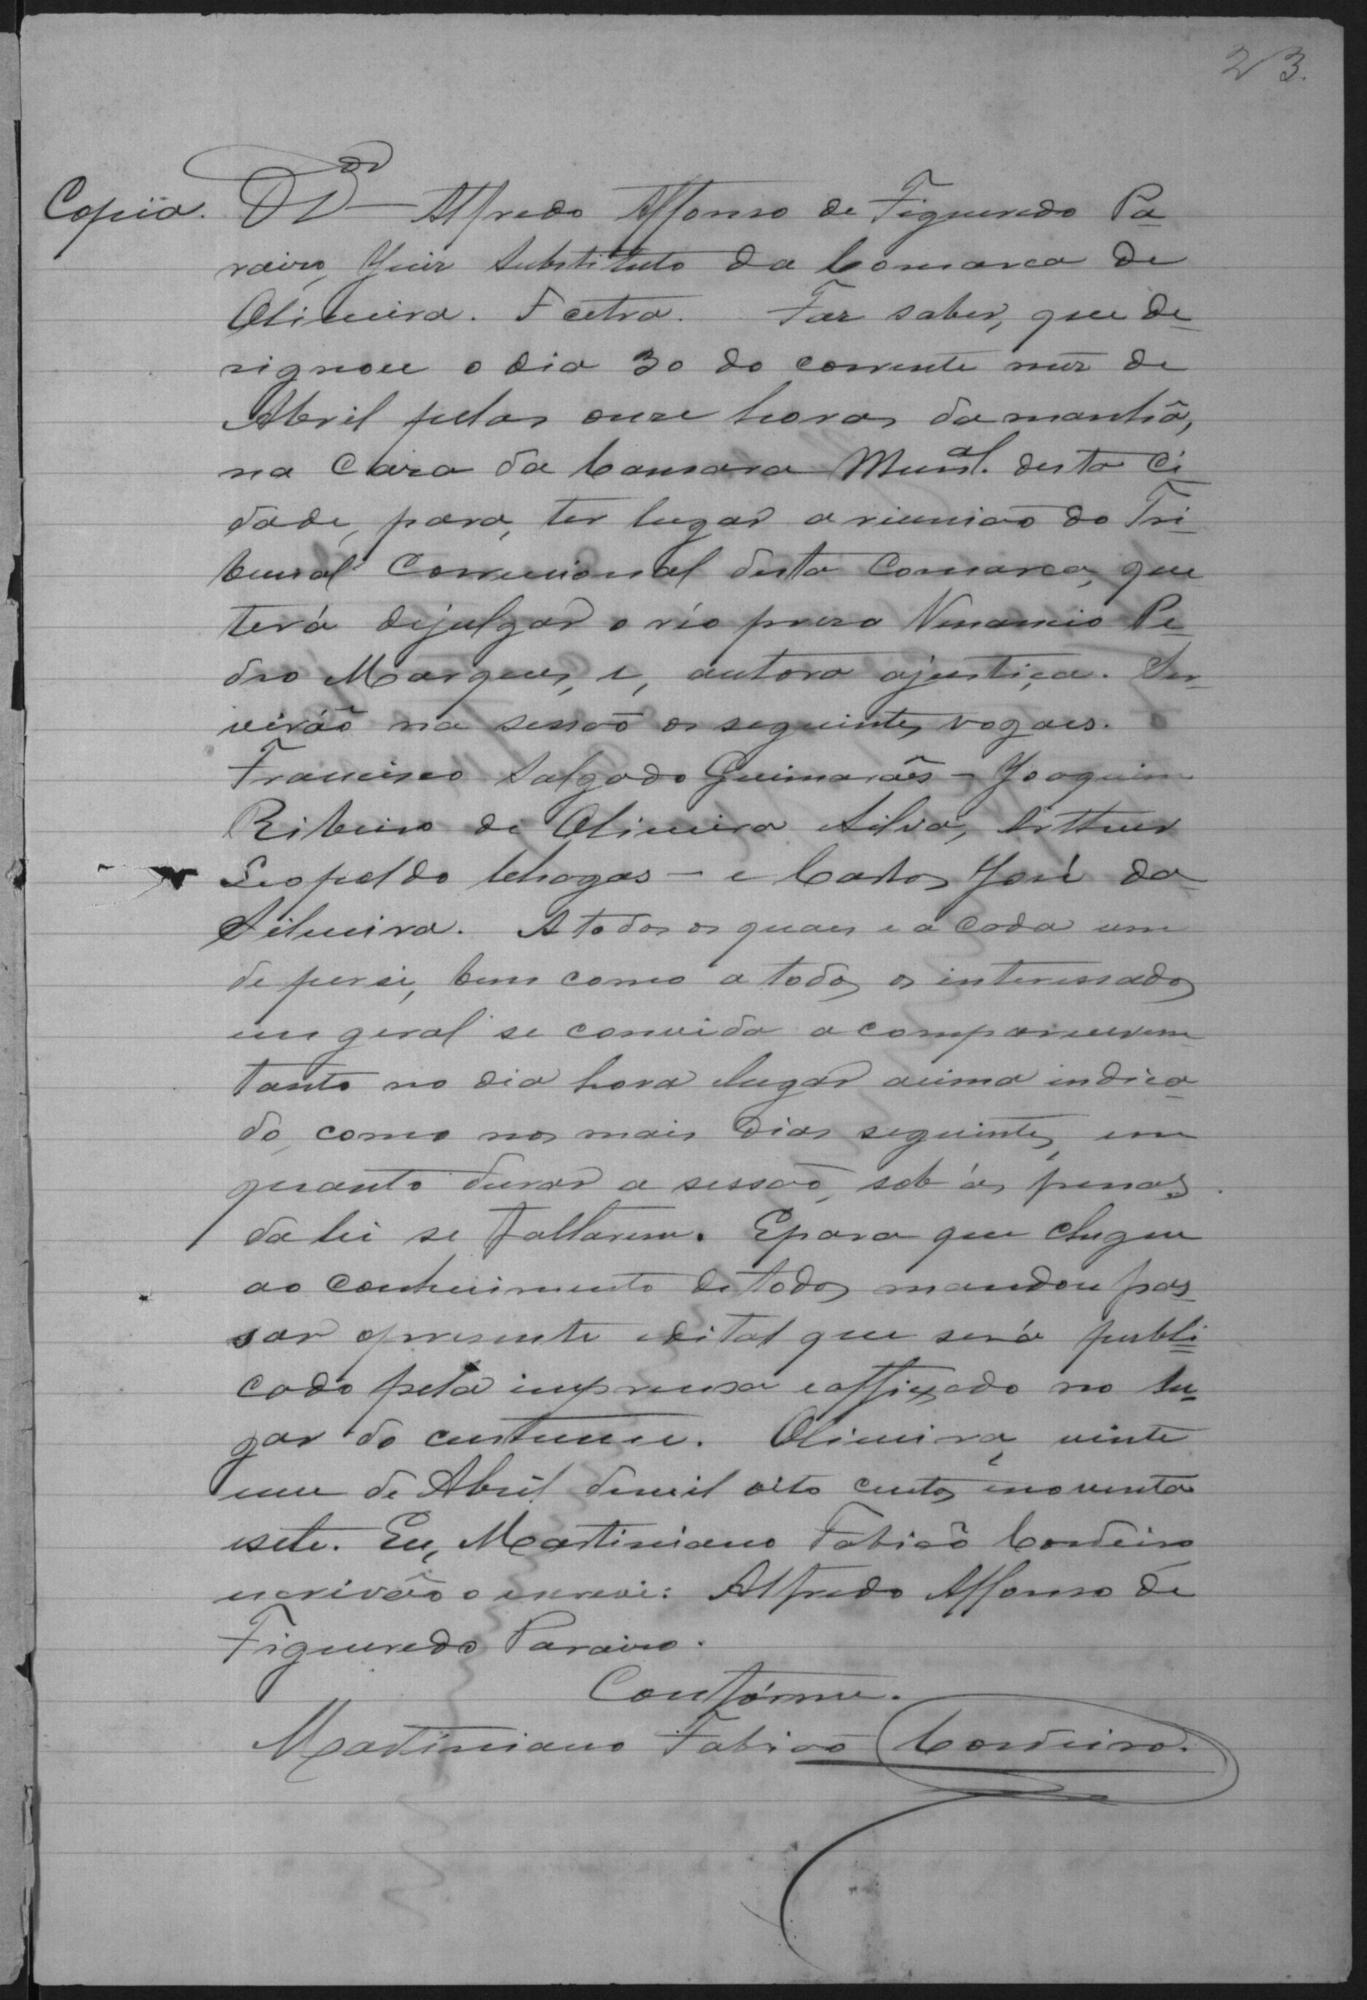 23.
Copia. O Dor Alfredo Affonso de Figueredo Pa-
raizo, Juiz Substituto da Comarca de
Oliveira. F cetra. Faz saber, que de-
signou o dia 30 do corrente mez de
Abril pelas onze horas da manhã,
na Caza da Camara Munal. desta Ci-
dade, para, ter lugar a reunião do Tri-
bunal Correcional desta Comarca, que
terá dejulgar o réo prezo Venancio Pe-
dro Marques, e, autora ajustiça. Ser-
virão na sessão os seguintes vogaes.
Francisco Salgado Guimarães - Joaquim
Ribeiro de Oliveira Silva, Arthur
Leopoldo Chagas - e Carlos José da
Silveira. A todos os quaes e a cada um
de persi, bem como a todos os interessados
em geral se convida a comparecerem
tanto no dia hora elugar acima indica-
do, como nos mais dias seguintes, em
quanto durar a sessão, sob ás penas
da lei se faltarem. Epara que chegue
ao conhecimento detodos mandou pas-
sar opresente edital que será publi-
cado pela imprensa eaffixado no lu-
gar do custume. Oliveira, vinte
um de Abril demil oito centos enoventa
esete. Eu, Martiniano Fabião Cordeiro
escrivão o escrevi: Alfredo Affonso de
Figueredo Paraizo.
Confórme.
Martiniano Fabião Cordeiro.